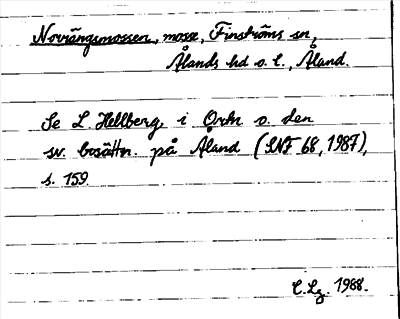 Norrängsmossen, mosse, Finströms sn,
Ålands hd o. l., Åland.
Se L Hellberg i Ortn o. den
sv. bosättn. på Åland (SNF 68, 1987),
s. 159.
C. Lg. 1988.